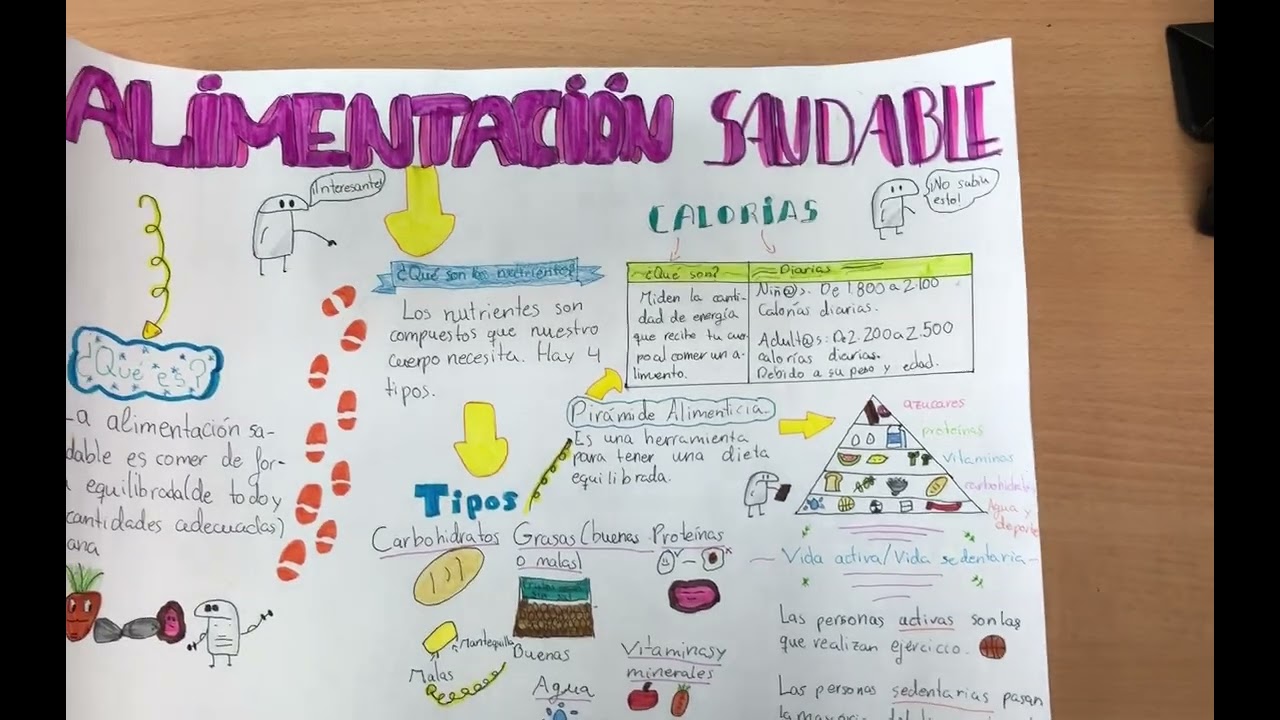 ALIMENTACIÓN SAUDABLE
¡Interesante!
¡No sabía
esto!
¿Qué es?
La alimentación sa-
dable es comer de for-
equilibrada(de todo y
cantidades adecuadas)
ana
¿Qué son los nutrientes?
Los nutrientes son
compuestos que nuestro
cuerpo necesita. Hay 4
tipos.
CALORÍAS
¿Qué son?
Miden la canti-
dad de energía
que recibe tu cuer
po al comer un a-
limento.
Diarias
Niñ@s: De 1.800 a 2.100
Calorías diarias.
Adult@s: De 2.200 a 2.500
calorías diarias.
Debido a su peso y edad.
Pirámide Alimenticia
Es una herramienta
para tener una dieta
equilibrada.
azucares
proteínas
vitaminas
carbohidrato
Agua y
deporte
Tipos
Carbohidratos
Grasas (buenas
o malas)
Proteínas
Mantequilla
Malas
Buenas
Agua
Vitaminas y
minerales
Vida activa/Vida sedentaria
Las personas activas son las
que realizan ejercicio.
Las personas sedentarias pasan